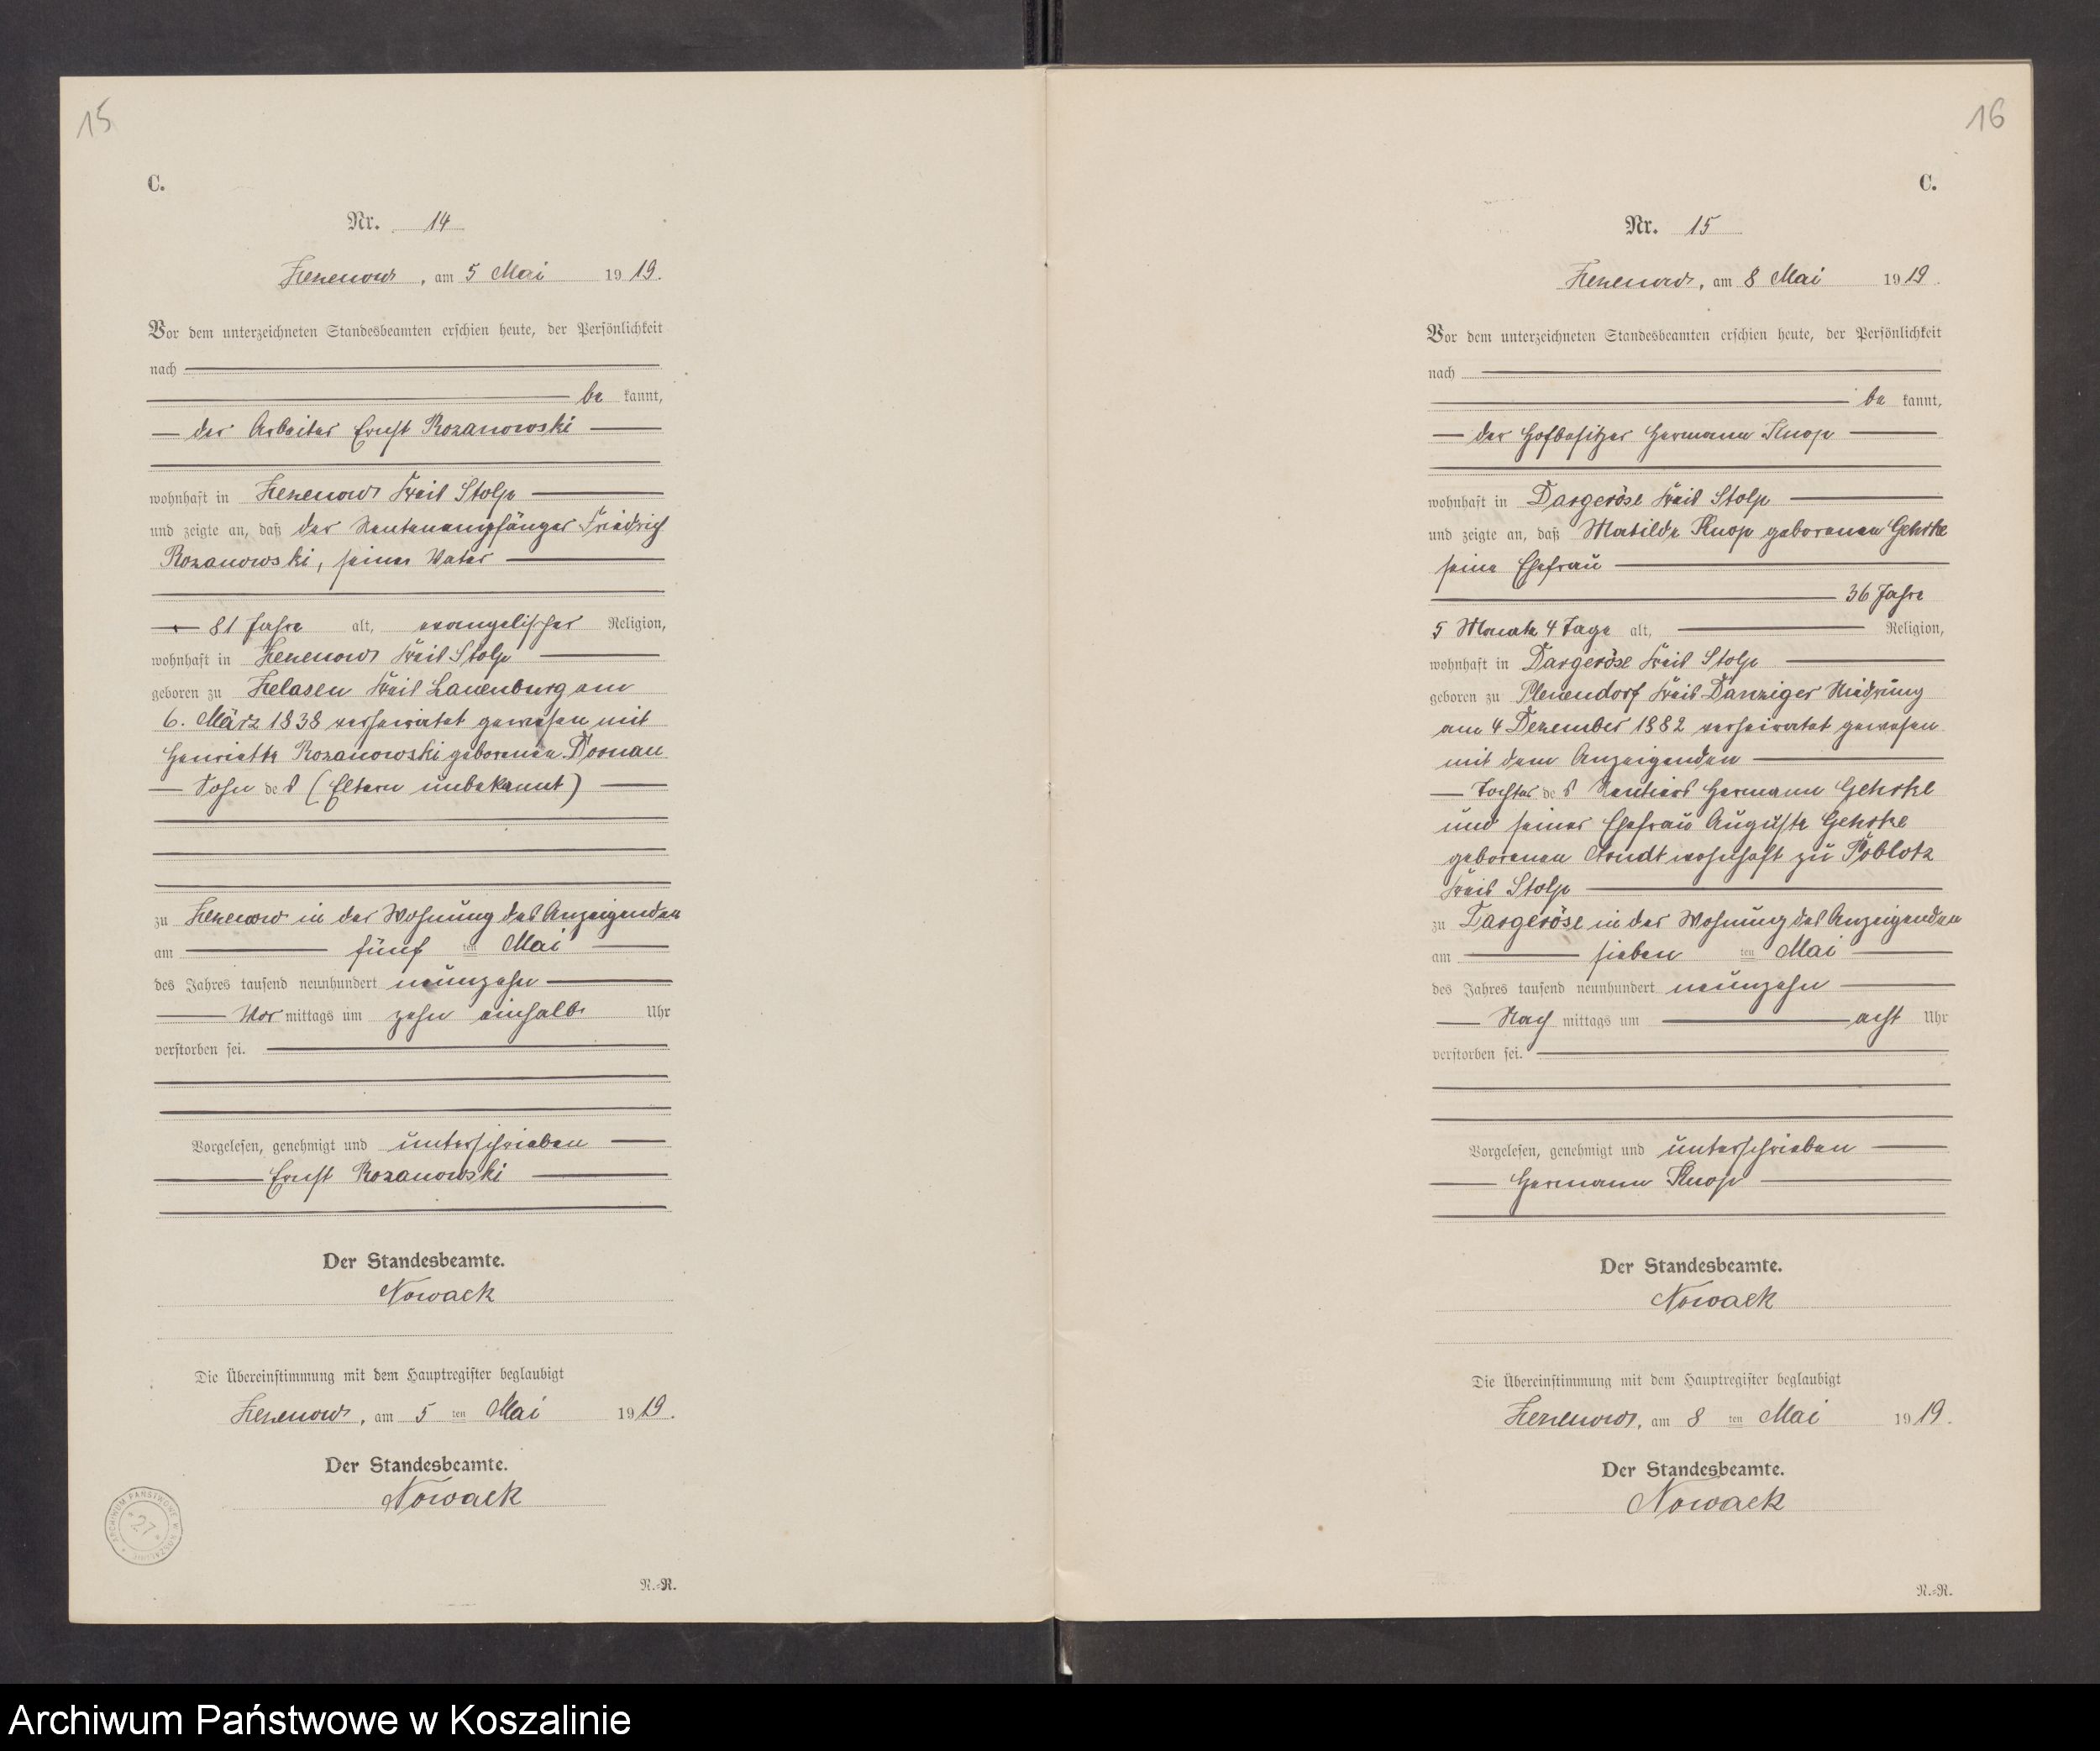 15
C.
Nr. 14
Zezenow, am 5 Mai 1919.
Vor dem unterzeichneten Standesbeamten erschien heute, der Persönlichkeit
nach
be kannt,
der Arbeiter Ernst Rozanowski
wohnhaft in Zezenow Kreis Stolp
und zeigte an, daß der Rentenempfänger Friedrich
Rozanowski, seiner Vater
81 Jahre alt, evangelischer Religion,
wohnhaft in Zezenow Kreis Stolp
geboren zu Zelasen Kreis Lauenburg am
6. März 1838 verheiratet gewesen mit
Henriette Rozanowski geborenen Dornau
Sohn des (Eltern unbekannt)
zu Zezenow in der Wohnung des Anzeigenden
am fünf ten Mai
des Jahres tausend neunhundert neunzehn
Vor mittags um zehn einhalb Uhr
verstorben sei.
Vorgelesen, genehmigt und unterschrieben
Ernst Rozanowski
Der Standesbeamte.
Nowack
Die Übereinstimmung mit dem Hauptregister beglaubigt
Zezenow, am 5 ten Mai 1919.
Der Standesbeamte.
Nowack
ARCHIWUM PAŃSTWOWE W KOSZALINIE
* 27 *
R.=R.
16
C.
Nr. 15
Zezenow, am 8 Mai 1919.
Vor dem unterzeichneten Standesbeamten erschien heute, der Persönlichkeit
nach
be kannt,
der Hofbesitzer Hermann Knop
wohnhaft in Dargeröse Kreis Stolp
und zeigte an, daß Matilde Knop geborenen Gehrke
seine Ehefrau
36 Jahre
5 Monate 4 Tage alt, Religion,
wohnhaft in Dargeröse Kreis Stolp
geboren zu Plenendorf Kreis Danziger Niedrung
am 4 Dezember 1882 verheiratet gewesen
mit dem Anzeigenden
Tochter des Rentiers Hermann Gehrke
und seiner Ehefrau Auguste Gehrke
geborenen Arndt wohnhaft zu Poblotz
Kreis Stolp
zu Dargeröse in der Wohnung des Anzeigenden
am sieben ten Mai
des Jahres tausend neunhundert neunzehn
Nach mittags um acht Uhr
verstorben sei.
Vorgelesen, genehmigt und unterschrieben
Hermann Knop
Der Standesbeamte.
Nowack
Die Übereinstimmung mit dem Hauptregister beglaubigt
Zezenow, am 8 ten Mai 1919.
Der Standesbeamte.
Nowack
R.=R.
Archiwum Państwowe w Koszalinie